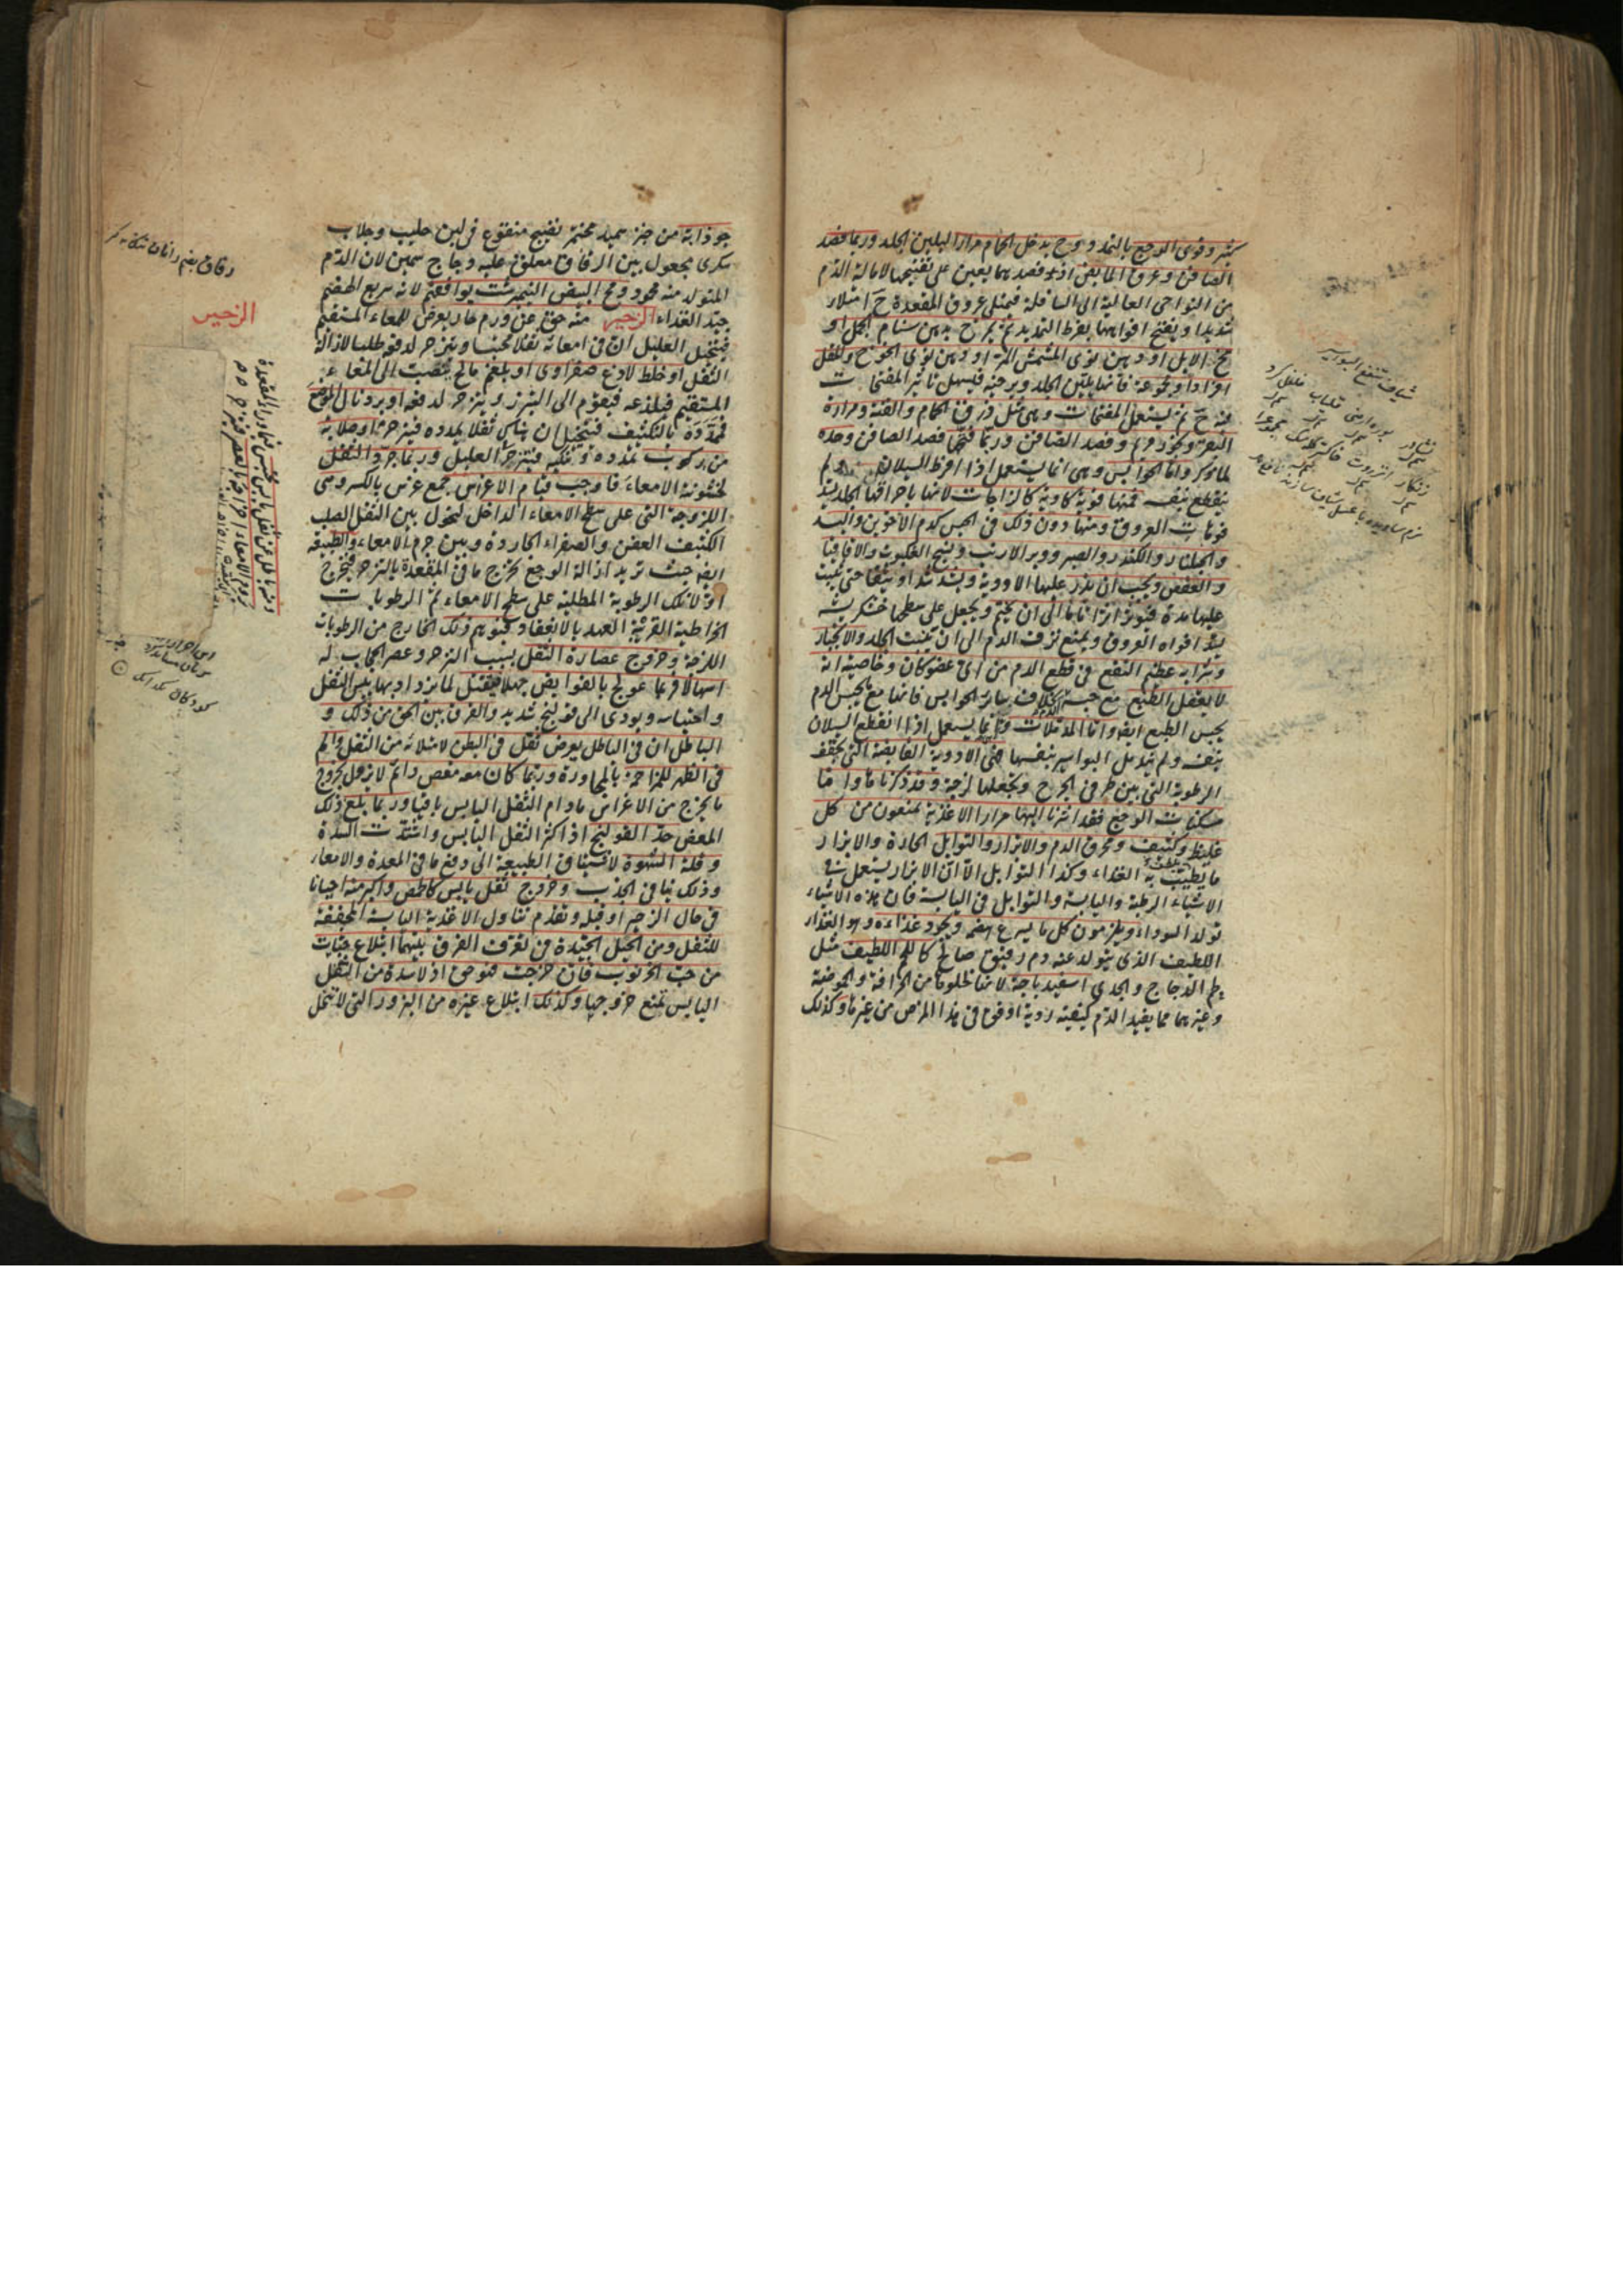 كثر وقوى الوجع بالتمدد و ح يدخل الحمام مرارا ليلين الجلد وربما فصد
الصافن وعروق المابض اذ فصدهما يعين على تفتيحها لامالة الدم
من النواحى العالية الى السافلة فيمتلى عروق المقعدة ح امتلاء
شديدا وينفتح افواهها بفرط التمديد ثم يمرخ بدهن سنام الجمل او
مخ الابل او دهن نوى المشمش المر او دهن نوى الخوخ والمقل
افرادا ومجموعة فانها يلين الجلد ويرخيه فيسهل تاثير المفتحات
فيه ح ثم يستعمل المفتحات وهى مثل ذرق الحمام والقنة ومرارة
البقر وبخور مريم وفصد الصافن وربما فتحها فصد الصافن وحده
لما ذكر واما الحوابس وهى انما يستعمل اذا افرط السيلان ولم
ينقطع بنفسه فمنها قوية كاوية كالزاجات لانها باحراقها الجلد يسد
فوهات العروق ومنها دون ذلك فى الحبس كدم الاخوين والبسد
والجلنار والكندر والصبر ووبر الارنب ونسج العنكبوت والاقاقيا
والعفص ويجب ان يذر عليها الادوية ويشد شدا وثيقا حتى يثبت
عليها مدة فيؤثر اثرا تاما الى ان يختم ويجعل على سطحها خشكريشة
يسد افواه العروق ويمنع نزف الدم الى ان تنبت الجلد والانجبار
وشرابه عظيم النفع فى قطع الدم من اى عضو كان وخاصيته انه
لا يعقل الطبع مع حبسه الدم بخلاف سائر الحوابس فانها مع حبس الدم
يحبس الطبع ايضا واما المدملات فانما يستعمل اذا انقطع السيلان
بنفسه ولم يندمل البواسير بنفسها فهى الادوية القابضة التى يجفف
الرطوبة التى بين طرفى الجرح ويجعلها لزجة وقد ذكرناها واما
مسكنات الوجع فقد اشرنا اليها مرارا الاغذية يمنعون من كل
غليظ وكثيف ومحرق الدم والابزار والتوابل الحارة والابزار
ما يطيب به الغذاء وكذا التوابل الا ان الابزار يستعمل فى
الاشياء الرطبة واليابسة والتوابل فى اليابسة فان هذه الاشياء
تولد السوداء ويلزمون كل ما يسرع هضمه ويجود غذاءه وهو الغذاء
اللطيف الذى يتولد عنه دم رقيق صالح كاللحم اللطيف مثل
لحم الدجاج والجدى اسفيدباجة لانها خلوها من الحرافة والحموضة
وغيرهما مما يفيد الدم كيفية ردية اوفق فى هذا المرض من غيرها وكذلك
شياف تنفع البواسير
جوذابة من خبز سميد مختمر نضيج منقوع فى لبن حليب وجلاب
سكرى يجعل بين الرقاق معلق عليه دجاج سمين لان الدم
المتولد منه محمود ومخ البيض النيمبرشت يوافقهم لانه سريع الهضم
جيد الغذاء الزحير منه حق عن ورم حار يعرض للمعاء المستقيم
فيتخيل العليل ان فى امعائه ثقلا محتبسا ويتزحر لدفعه طلبا لازالة
الثقل او خلط لاذع صفراوى او بلغم مالح ينصب الى المعاء
المستقيم فيلذعه فيقوم الى التبرز ويتزحر لدفعه او برد نال الموضع
فمدده بالتكثيف فيتخيل ان هناك ثقلا يمدده فيتزحر او صلابة
من ركوب تمدده وتنكيه فيتزحر العليل وربما جرد الثفل
لخشونته الامعاء فاوجب قيام الاغراس جمع غرس بالكسر وهى
اللزوجة التى على سطح الامعاء الداخل ليحول بين الثفل الصلب
الكثيف العفن والصفراء الحارة وبين جرم الامعاء والطبيعة
ايضا حيث تريد ازالة الوجع تخرج ما فى المقعدة بالتزحر فيخرج
اولا تلك الرطوبة المطلية على سطح الامعاء ثم الرطوبات
المخاطية القريبة العهد بالانعقاد فيتوهم ذلك الخارج من الرطوبات
اللزجة وخروج عصارة الثفل بسبب التزحر وعصر الحجاب له
اسهالا فربما عولج بالقوابض جهلا فيقتل لما يزداد بها يبس الثفل
واحتباسه ويودى الى قولنج شديد والفرق بين الحق من ذلك و
الباطل ان فى الباطل يعرض ثقل فى البطن لامتلائه من الثفل والم
فى الظهر للمزاحمة بالمجاورة وربما كان معه مغص دائم لا يزول بخروج
ما يخرج من الاغراس مادام الثفل اليابس باقيا وربما بلغ ذلك
المغص حد القولنج اذا كثر الثفل اليابس واشتدت السدة
وقلة الشهوة لاشتياق الطبيعة الى دفع ما فى المعدة والامعاء
وذلك ينافى الجذب وخروج ثفل يابس كالحمص واكبر منه احيانا
فى حال الزحير او قبله وتقدم تناول الاغذية اليابسة المجففة
للثفل ومن الحيل الجيدة فى تعرف الفرق بينهما ابتلاع حبات
من حب الخرنوب فان خرجت فهو حق اذ لا سدة من الثفل
اليابس تمنع خروجها وكذلك ابتلاع غيره من البزور التى لا تنحل
الزحير
ومنه باطل عن ثفل يابس محتبس فيما وراء المقعدة